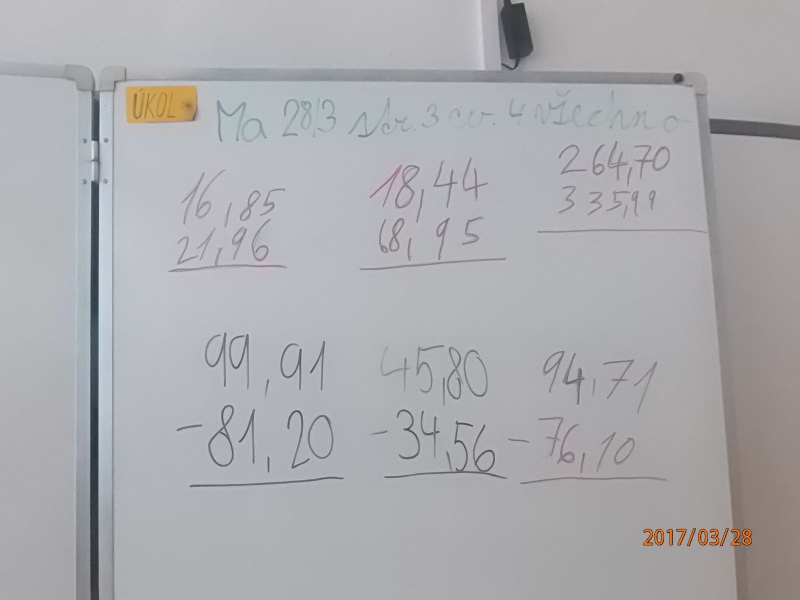 ÚKOL
Ma 28/3 str. 3 cv. 4 všechno
16,85
21,96
18,44
68,95
264,70
335,99
99,91
-81,20
45,80
-34,56
94,71
-76,10
2017/03/28